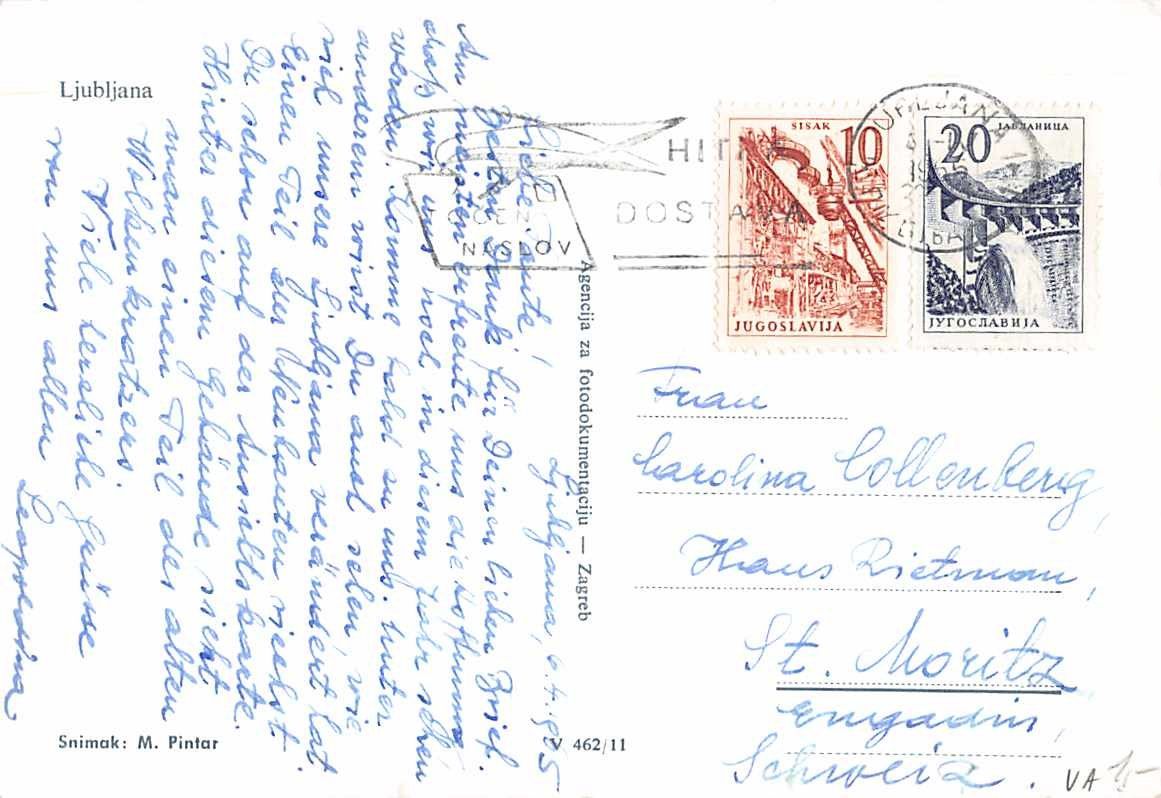 Ljubljana
Ljubljana, 6.4.1965
Liebe Tante!
Besten Dank für Deinen lieben Brief.
Am meisten erfreute uns die Hoffnung
daß wir uns noch in diesem Jahr sehen
werden. Komme bald zu uns. Unter
anderem wirst Du auch sehen, wie
viel unsere Ljubljana verändert hat.
Einen Teil der Neubauten siehst
Du schon auf der Ansichtskarte.
Hinter diesem Gebäude sieht
man einen Teil des alten
Wolkenkratzers.
Viele herzliche Grüsse
von uns allen
Leopoldina
Snimak: M. Pintar
Agencija za fotodokumentaciju — Zagreb
V 462/11
TOČEN
NASLOV
HITRA
DOSTAVA
SISAK 10
JUGOSLAVIJA
20 ЈАБЛАНИЦА
ЈУГОСЛАВИЈА
LJUBLJANA
1965
Frau
Carolina Collenberg,
Haus Rietman,
St. Moritz
Engadin,
Schweiz.
VA 1,-